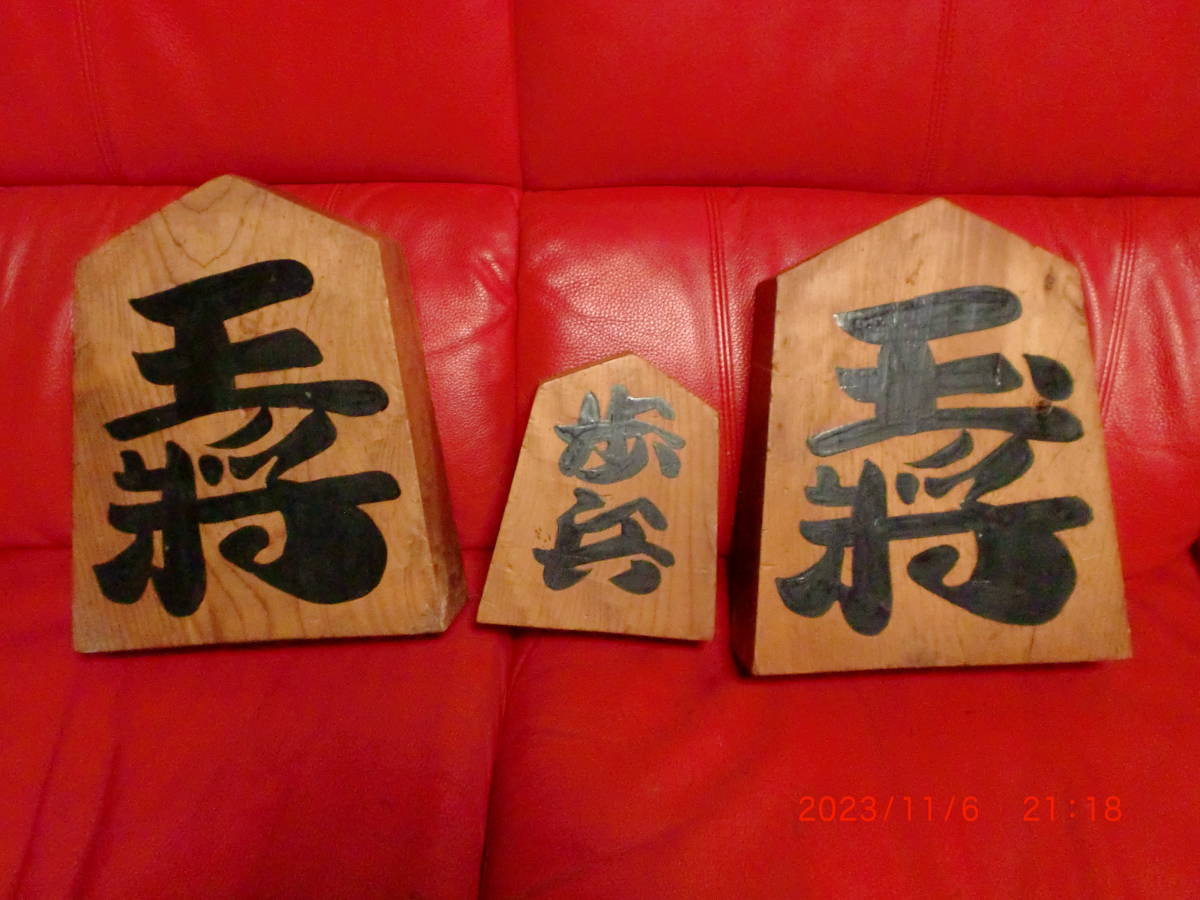 王將
歩兵
玉將
2023/11/6 21:18